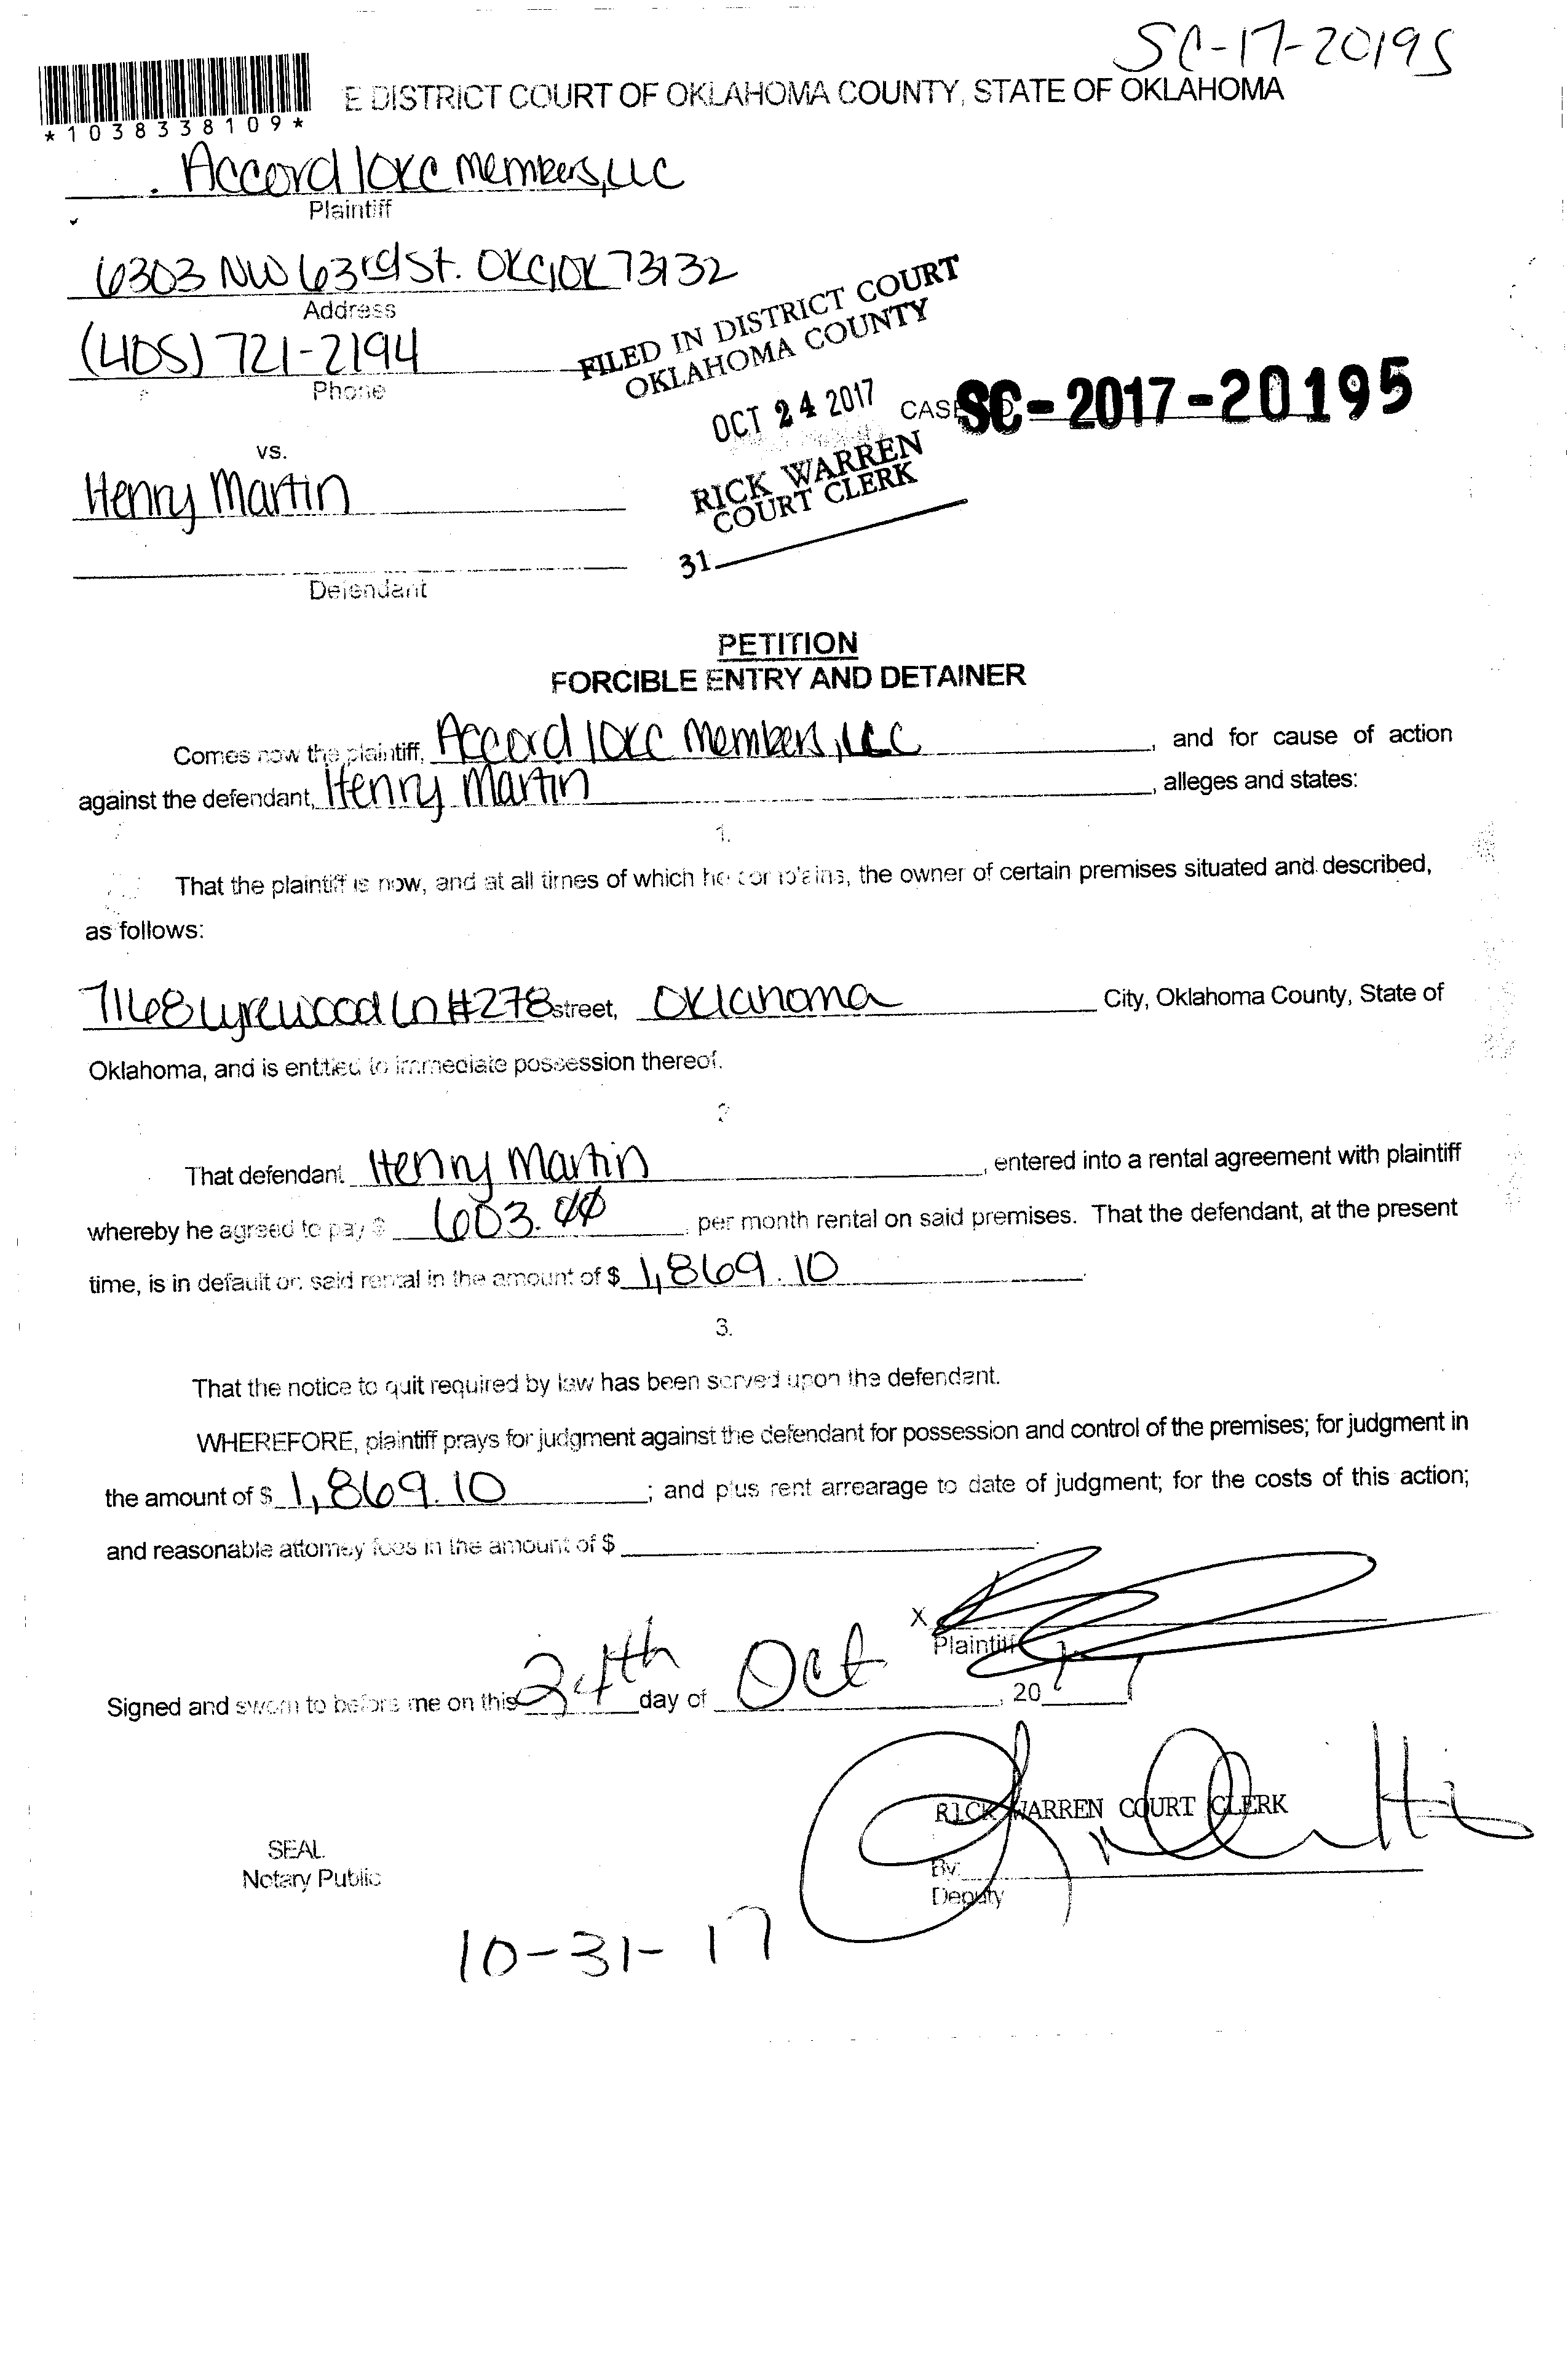 SC-17-20195
E DISTRICT COURT OF OKLAHOMA COUNTY, STATE OF OKLAHOMA
*1038338109*
Accord 10KC Members, LLC
Plaintiff
6303 NW 63rd St. OKC, OK 73132
Address
FILED IN DISTRICT COURT
OKLAHOMA COUNTY
(405) 721-2194
Phone
OCT 24 2017
CASE SC-2017-20195
RICK WARREN
COURT CLERK
vs.
Henry Martin
31
Defendant
PETITION
FORCIBLE ENTRY AND DETAINER
Comes now the plaintiff, Accord 10KC Members, LLC, and for cause of action
against the defendant, Henry Martin, alleges and states:
1.
That the plaintiff is now, and at all times of which he complains, the owner of certain premises situated and described,
as follows:
7168 Lyrewood Ln #278 street, Oklahoma City, Oklahoma County, State of
Oklahoma, and is entitled to immediate possession thereof.
2
That defendant Henry Martin, entered into a rental agreement with plaintiff
whereby he agreed to pay $ 603.00 per month rental on said premises. That the defendant, at the present
time, is in default on said rental in the amount of $ 1,869.10.
3.
That the notice to quit required by law has been served upon the defendant.
WHEREFORE, plaintiff prays for judgment against the defendant for possession and control of the premises; for judgment in
the amount of $ 1,869.10; and plus rent arrearage to date of judgment; for the costs of this action;
and reasonable attorney fees in the amount of $
X
Plaintiff
Signed and sworn to before me on this 24th day of Oct, 2017
RICK WARREN COURT CLERK
SEAL
Notary Public
By:
Deputy
10-31-17